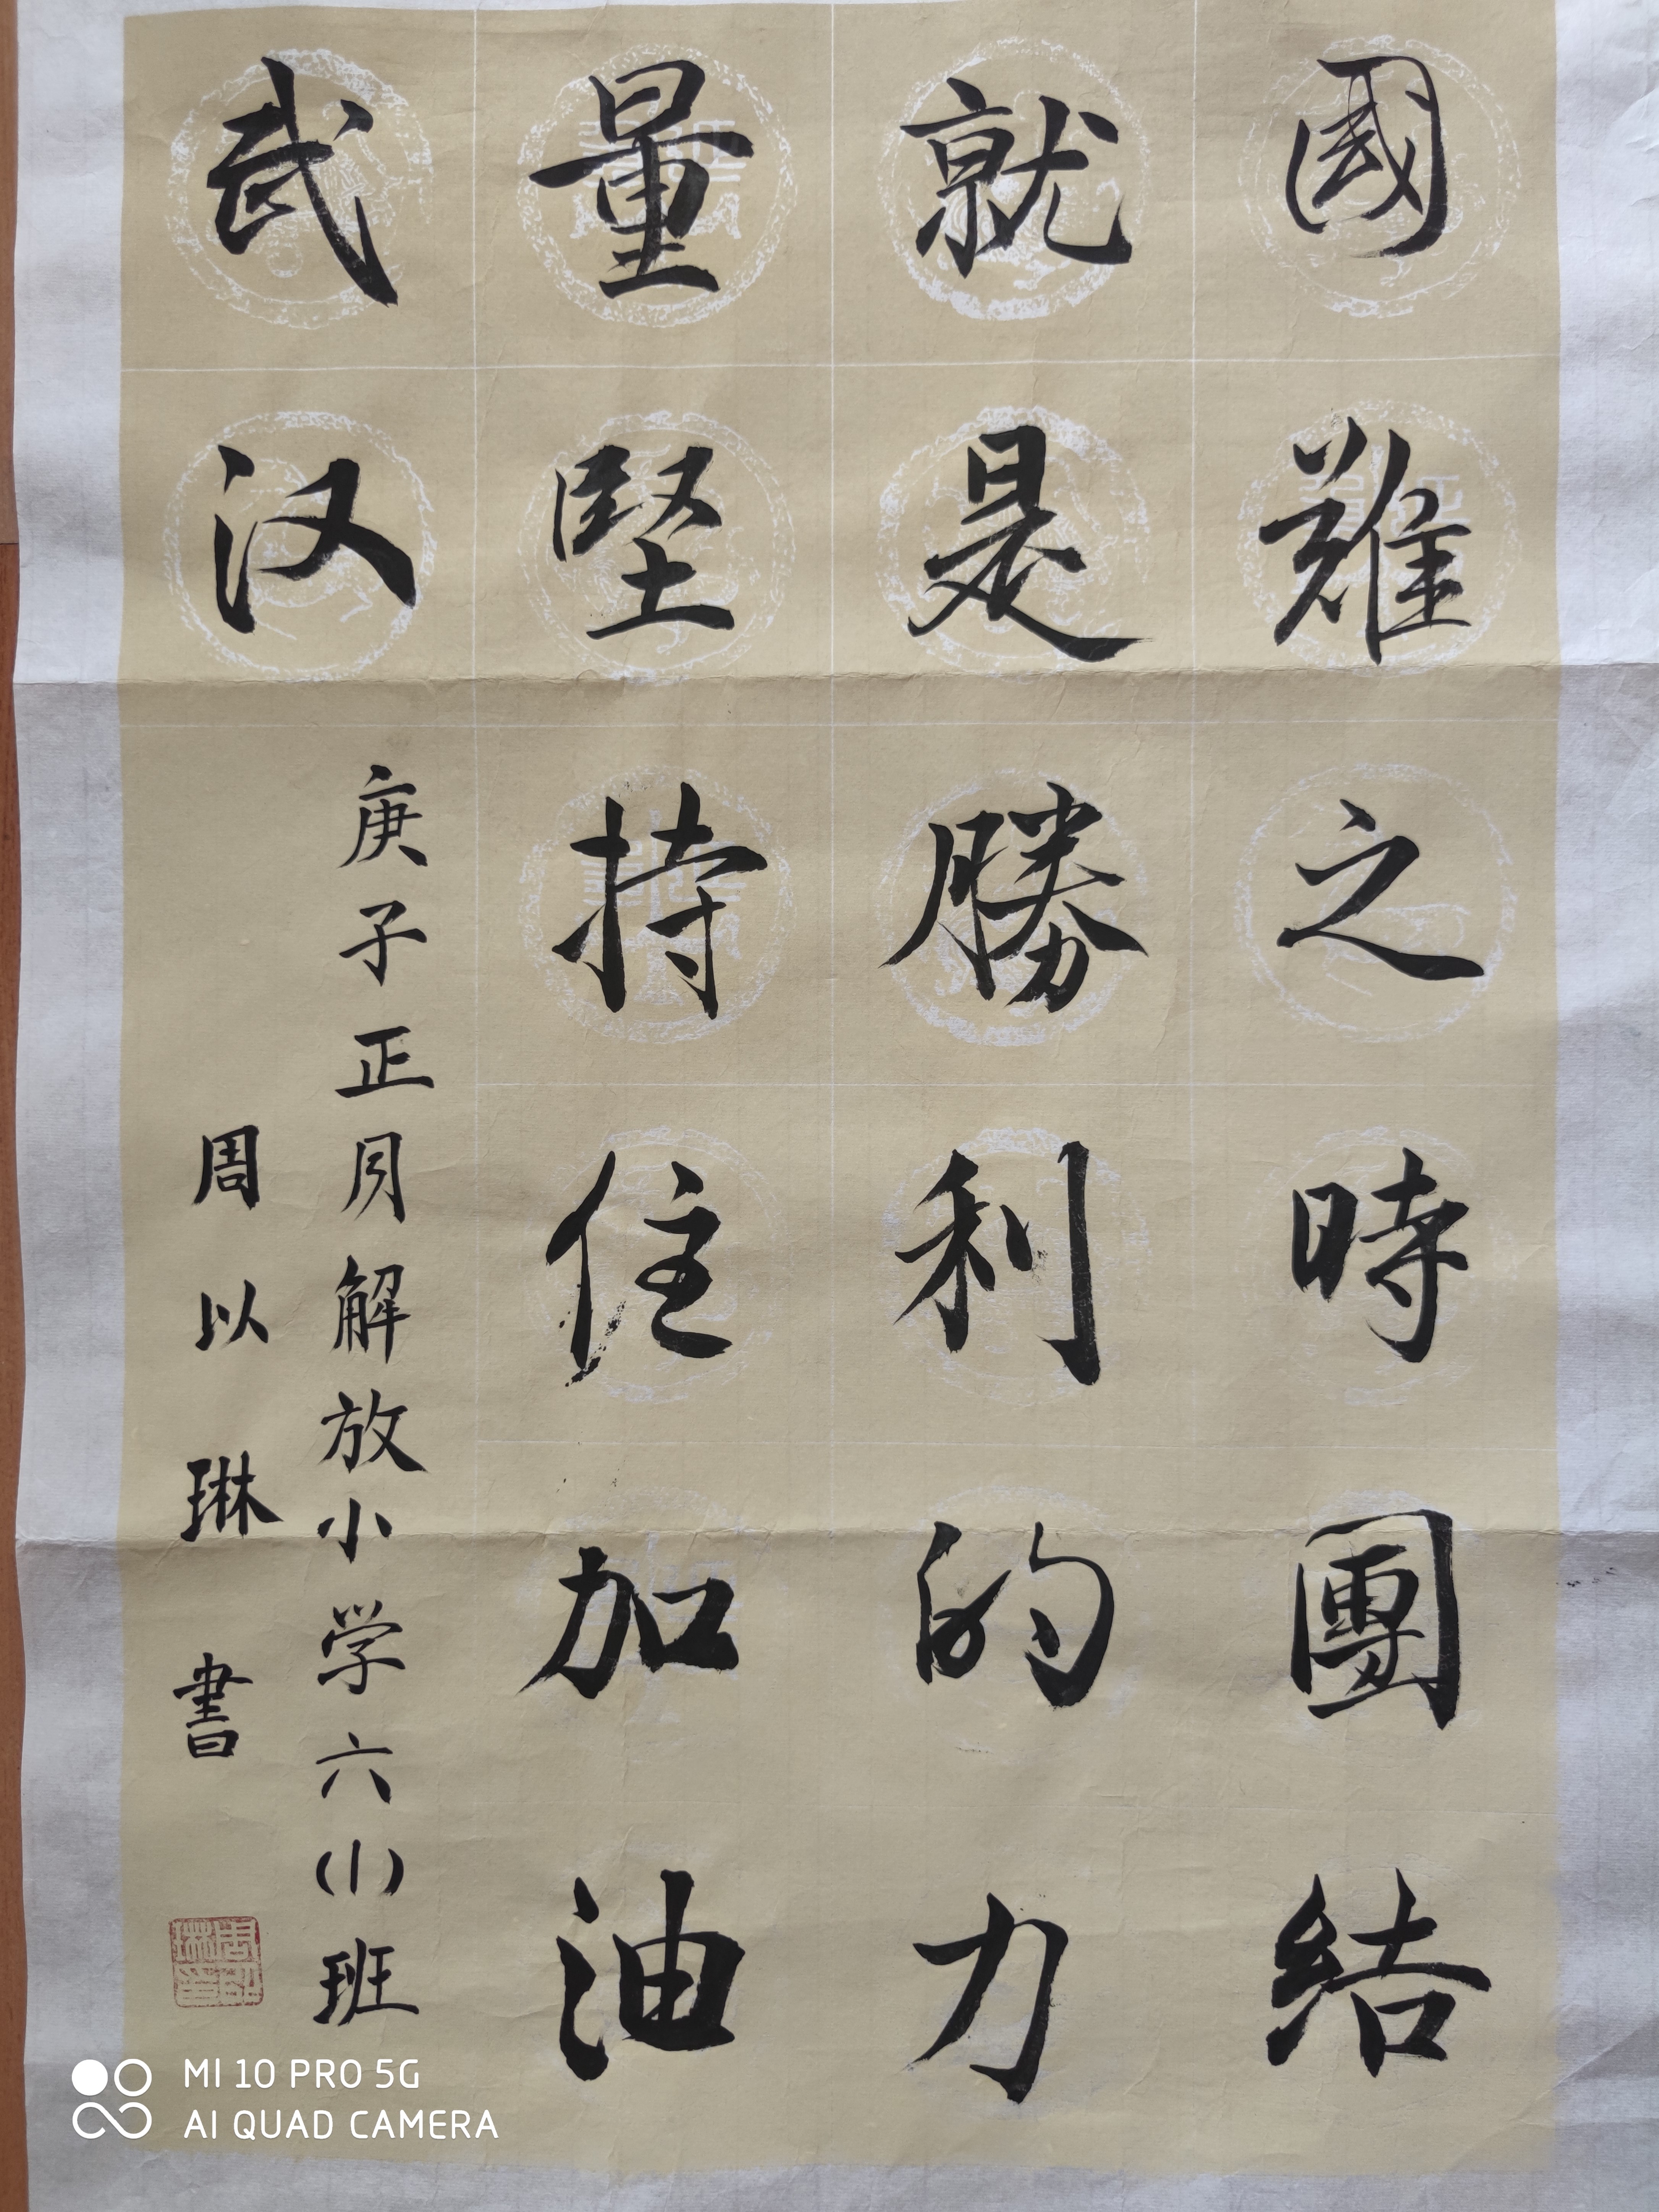 國難之時團結
就是勝利的力
量堅持住加油
武汉
庚子正月解放小学六(小)班
周以琳書
MI 10 PRO 5G
AI QUAD CAMERA